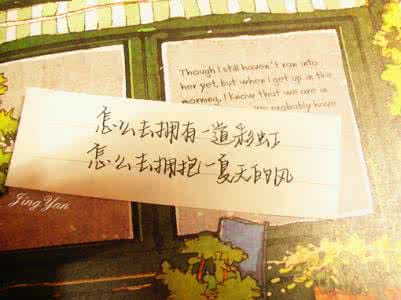 Though I still haven't ran into
her yet, but when I get up in the
morning, I know that we are in
we probably have
怎么去拥有一道彩虹
怎么去拥抱一夏天的风
Jing Yan